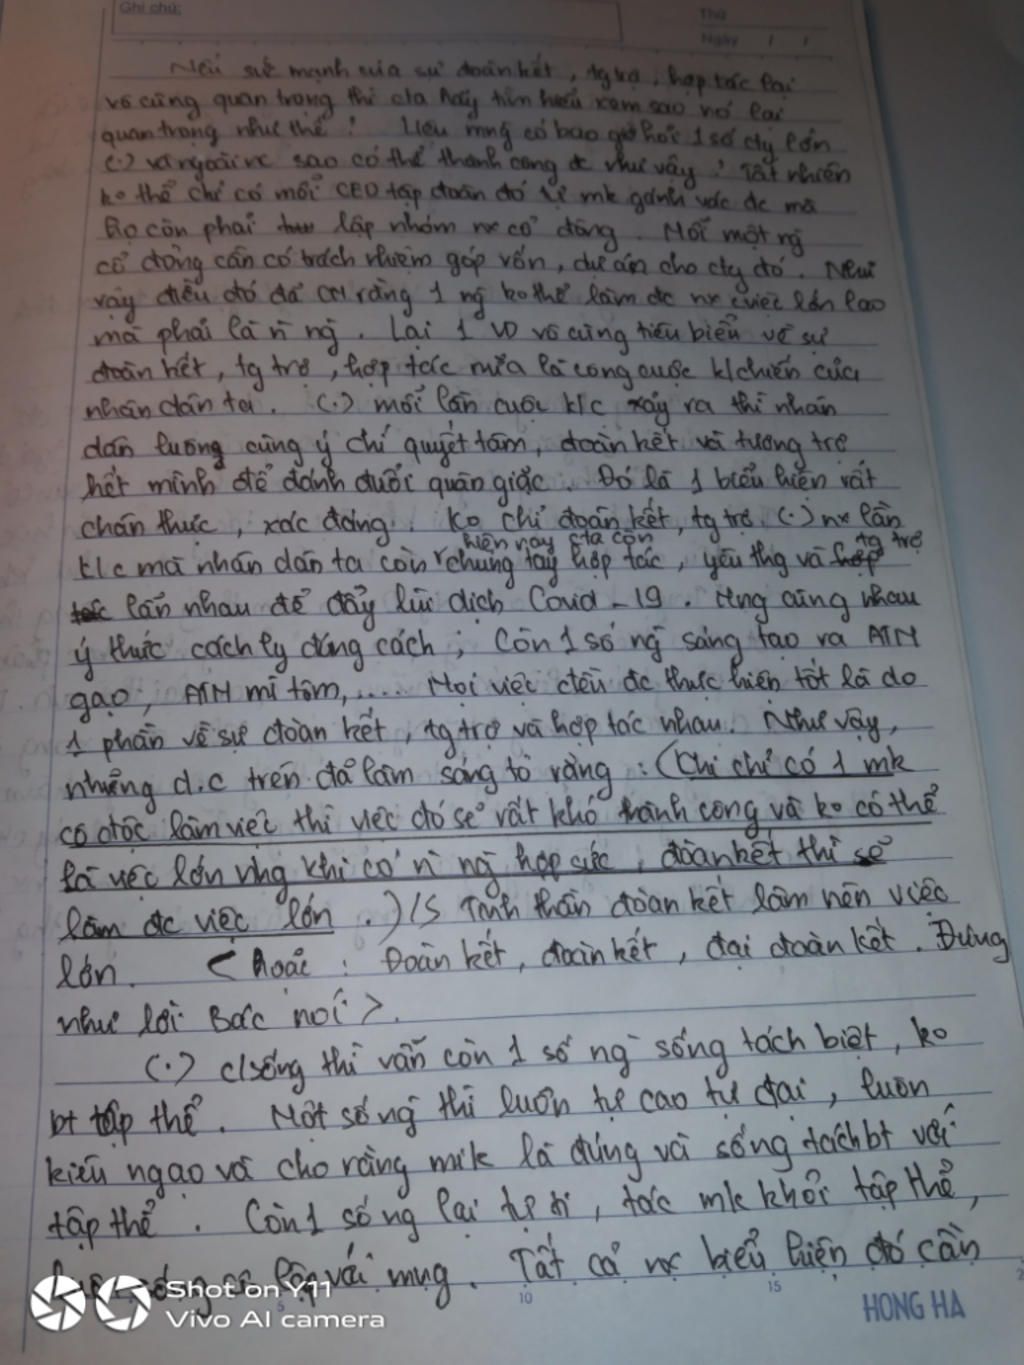 Ghi chú:
Thứ
Ngày / /
Nếu sức mạnh của sự đoàn kết, tg trợ, hợp tác lại
vô cùng quan trọng thì cta hãy tìm hiểu xem sao nó lại
quan trọng như thế? Liệu mng có bao giờ hỏi 1 số cty lớn
(.) và ngoài nc sao có thể thành công đc như vậy? Tất nhiên
ko thể chỉ có mỗi CEO tập đoàn đó tự mk gánh vác đc mà
họ còn phải lập nhóm cổ đông. Mỗi một ng
cổ đông cần có trách nhiệm góp vốn, dự án cho cty đó. Như
vậy điều đó đã CM rằng 1 ng ko thể làm đc việc lớn lao
mà phải là n ng. Lại 1 VD vô cùng tiêu biểu về sự
đoàn kết, tg trợ, hợp tác nữa là công cuộc k/chiến của
nhân dân ta. (.) mỗi lần cuộc k/c xảy ra thì nhân
dân luông cùng ý chí quyết tâm, đoàn kết và tương trợ
hết mình để đánh đuổi quân giặc. Đó là 1 biểu hiện rất
chân thực, xác đáng. Ko chỉ đoàn kết, tg trợ (.) lần
hiện nay cta còn tg trợ
k/c mà nhân dân ta còn chung tay hợp tác, yêu thg và hợp
tác lẫn nhau để đẩy lùi dịch Covid-19. Mng cùng nhau
ý thức cách ly đúng cách; Còn 1 số ng sáng tạo ra ATM
gạo, ATM mì tôm,.... Mọi việc đều đc thực hiện tốt là do
1 phần về sự đoàn kết, tg trợ và hợp tác nhau. Như vậy,
những d.c trên đã làm sáng tỏ rằng: (Khi chỉ có 1 mk
cô độc làm việc thì việc đó sẽ rất khó thành công và ko có thể
là việc lớn nhg khi có n ng hợp sức, đoàn kết thì sẽ
làm đc việc lớn.)/S Tinh thần đoàn kết làm nên việc
lớn. < hoặc: Đoàn kết, đoàn kết, đại đoàn kết. Đúng
như lời Bác nói >.
(.) c/sống thì vẫn còn 1 số ng sống tách biệt, ko
bt tập thể. Một số ng thì luôn tự cao tự đại, luôn
kiêu ngạo và cho rằng mik là đúng và sống tách bt với
tập thể. Còn 1 số ng lại tự ti, tác mk khỏi tập thể,
cô lập với mng. Tất cả biểu hiện đó cần
Shot on Y11
Vivo AI camera
5 10 15 2
HONG HA